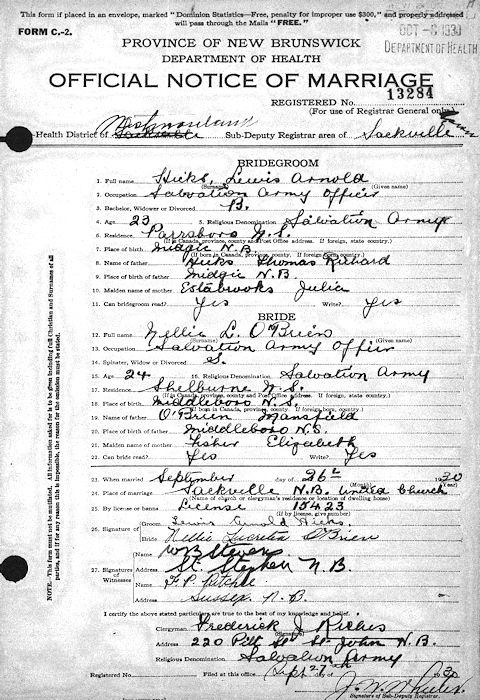 This form if placed in an envelope, marked "Dominion Statistics—Free, penalty for improper use $300," and properly addressed
will pass through the Mails "FREE."
FORM C.-2.
OCT 1930
DEPARTMENT OF HEALTH
PROVINCE OF NEW BRUNSWICK
DEPARTMENT OF HEALTH
OFFICIAL NOTICE OF MARRIAGE
13284
REGISTERED No.
(For use of Registrar General only)
Westmorland
Health District of Sackville Sub-Deputy Registrar area of Sackville
BRIDEGROOM
1. Full name Hicks, Lewis Arnold
(Surname) (Given name)
2. Occupation Salvation Army Officer
3. Bachelor, Widower or Divorced B.
4. Age 23 5. Religious Denomination Salvation Army
6. Residence Parrsboro N.S.
(If in Canada, province, county and Post Office address. If foreign, state country.)
7. Place of birth Midgic N.B.
(If born in Canada, province, county. If foreign born, country.)
8. Name of father Hicks Thomas Richard
9. Place of birth of father Midgic N.B.
10. Maiden name of mother Estabrooks Julia
11. Can bridegroom read? Yes Write? Yes
BRIDE
12. Full name Nellie L. O'Brien
(Surname) (Given name)
13. Occupation Salvation Army Officer
14. Spinster, Widow or Divorced S.
15. Age 24 16. Religious Denomination Salvation Army
17. Residence Shelburne N.S.
(If in Canada, province, county and Post Office address. If foreign, state country.)
18. Place of birth Middleboro N.S.
(If born in Canada, province, county. If foreign born, country.)
19. Name of father O'Brien Mansfield
20. Place of birth of father Middleboro N.S.
21. Maiden name of mother Fisher Elizabeth
22. Can bride read? Yes Write? Yes
23. When married September day of 26th 1930
(Month)
24. Place of marriage Sackville N.B. United Church
(Name of church or clergyman's residence or location of dwelling house)
25. By license or banns License 15423
(If by license, give number)
26. Signature of
Groom Lewis Arnold Hicks
Bride Nellie Lucretia O'Brien
27. Signature of Witnesses
Name W B Stevens
Address St. Stephen N.B.
Name F. P. Ritchie
Address Sussex N.B.
I certify the above stated particulars are true to the best of my knowledge and belief.
Clergyman Frederick J Riches
(Signature)
Address 220 Pitt St St. John N.B.
Religious Denomination Salvation Army
Registered No. Filed at this office Sept 27th 1930
J. W. Wheeler
Signature of Sub-Deputy Registrar.
NOTE.—This form must not be mutilated. All information asked for is to be given including full Christian and Surnames of all
parties, and if for any reason this is impossible, the reason for the omission must be stated.